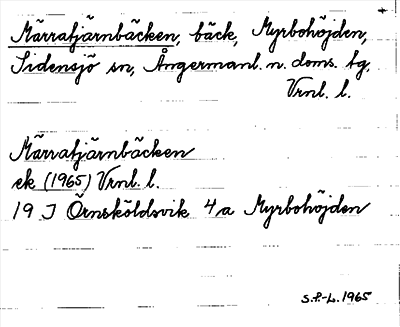 Märratjärnbäcken, bäck, Myrbohöjden,
Sidensjö sn, Ångermanl. n. doms. tg.
Vrnl. l.
Märratjärnbäcken
ek (1965) Vrnl. l.
19 J Örnsköldsvik 4a Myrbohöjden
S.P.-L. 1965